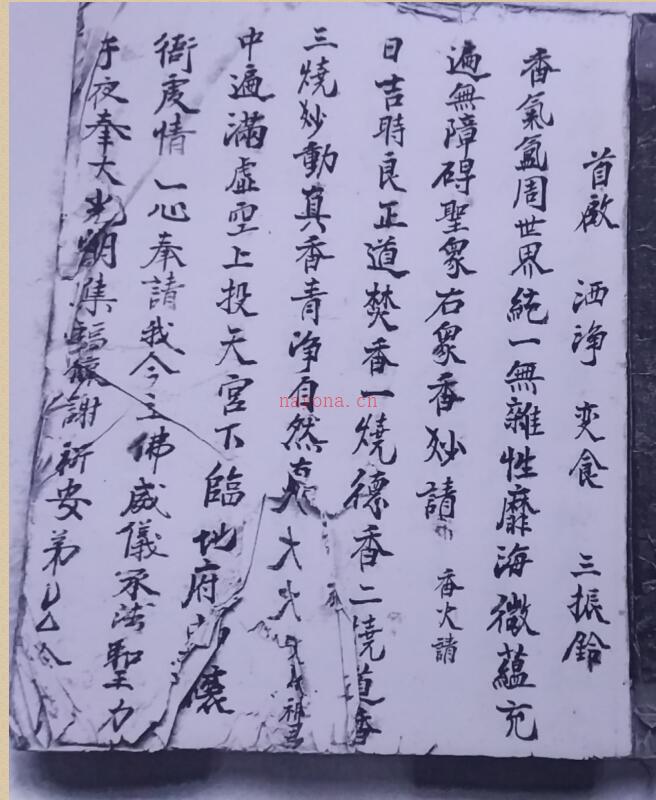 首啟 洒淨 变食 三振鈴
香氣氳周世界純一無雜性靡海微蘊充
遍無障碍聖衆右衆香妙請 香火請
日吉時良正道焚香一燒德香二燒道香
三燒妙動真香青淨自然
中遍滿虛空上投天宮下臨地府
衙虔情一心奉請我今主佛威儀承法聖力
午夜奉大光明集福禳謝祈安弟
nayona.cn